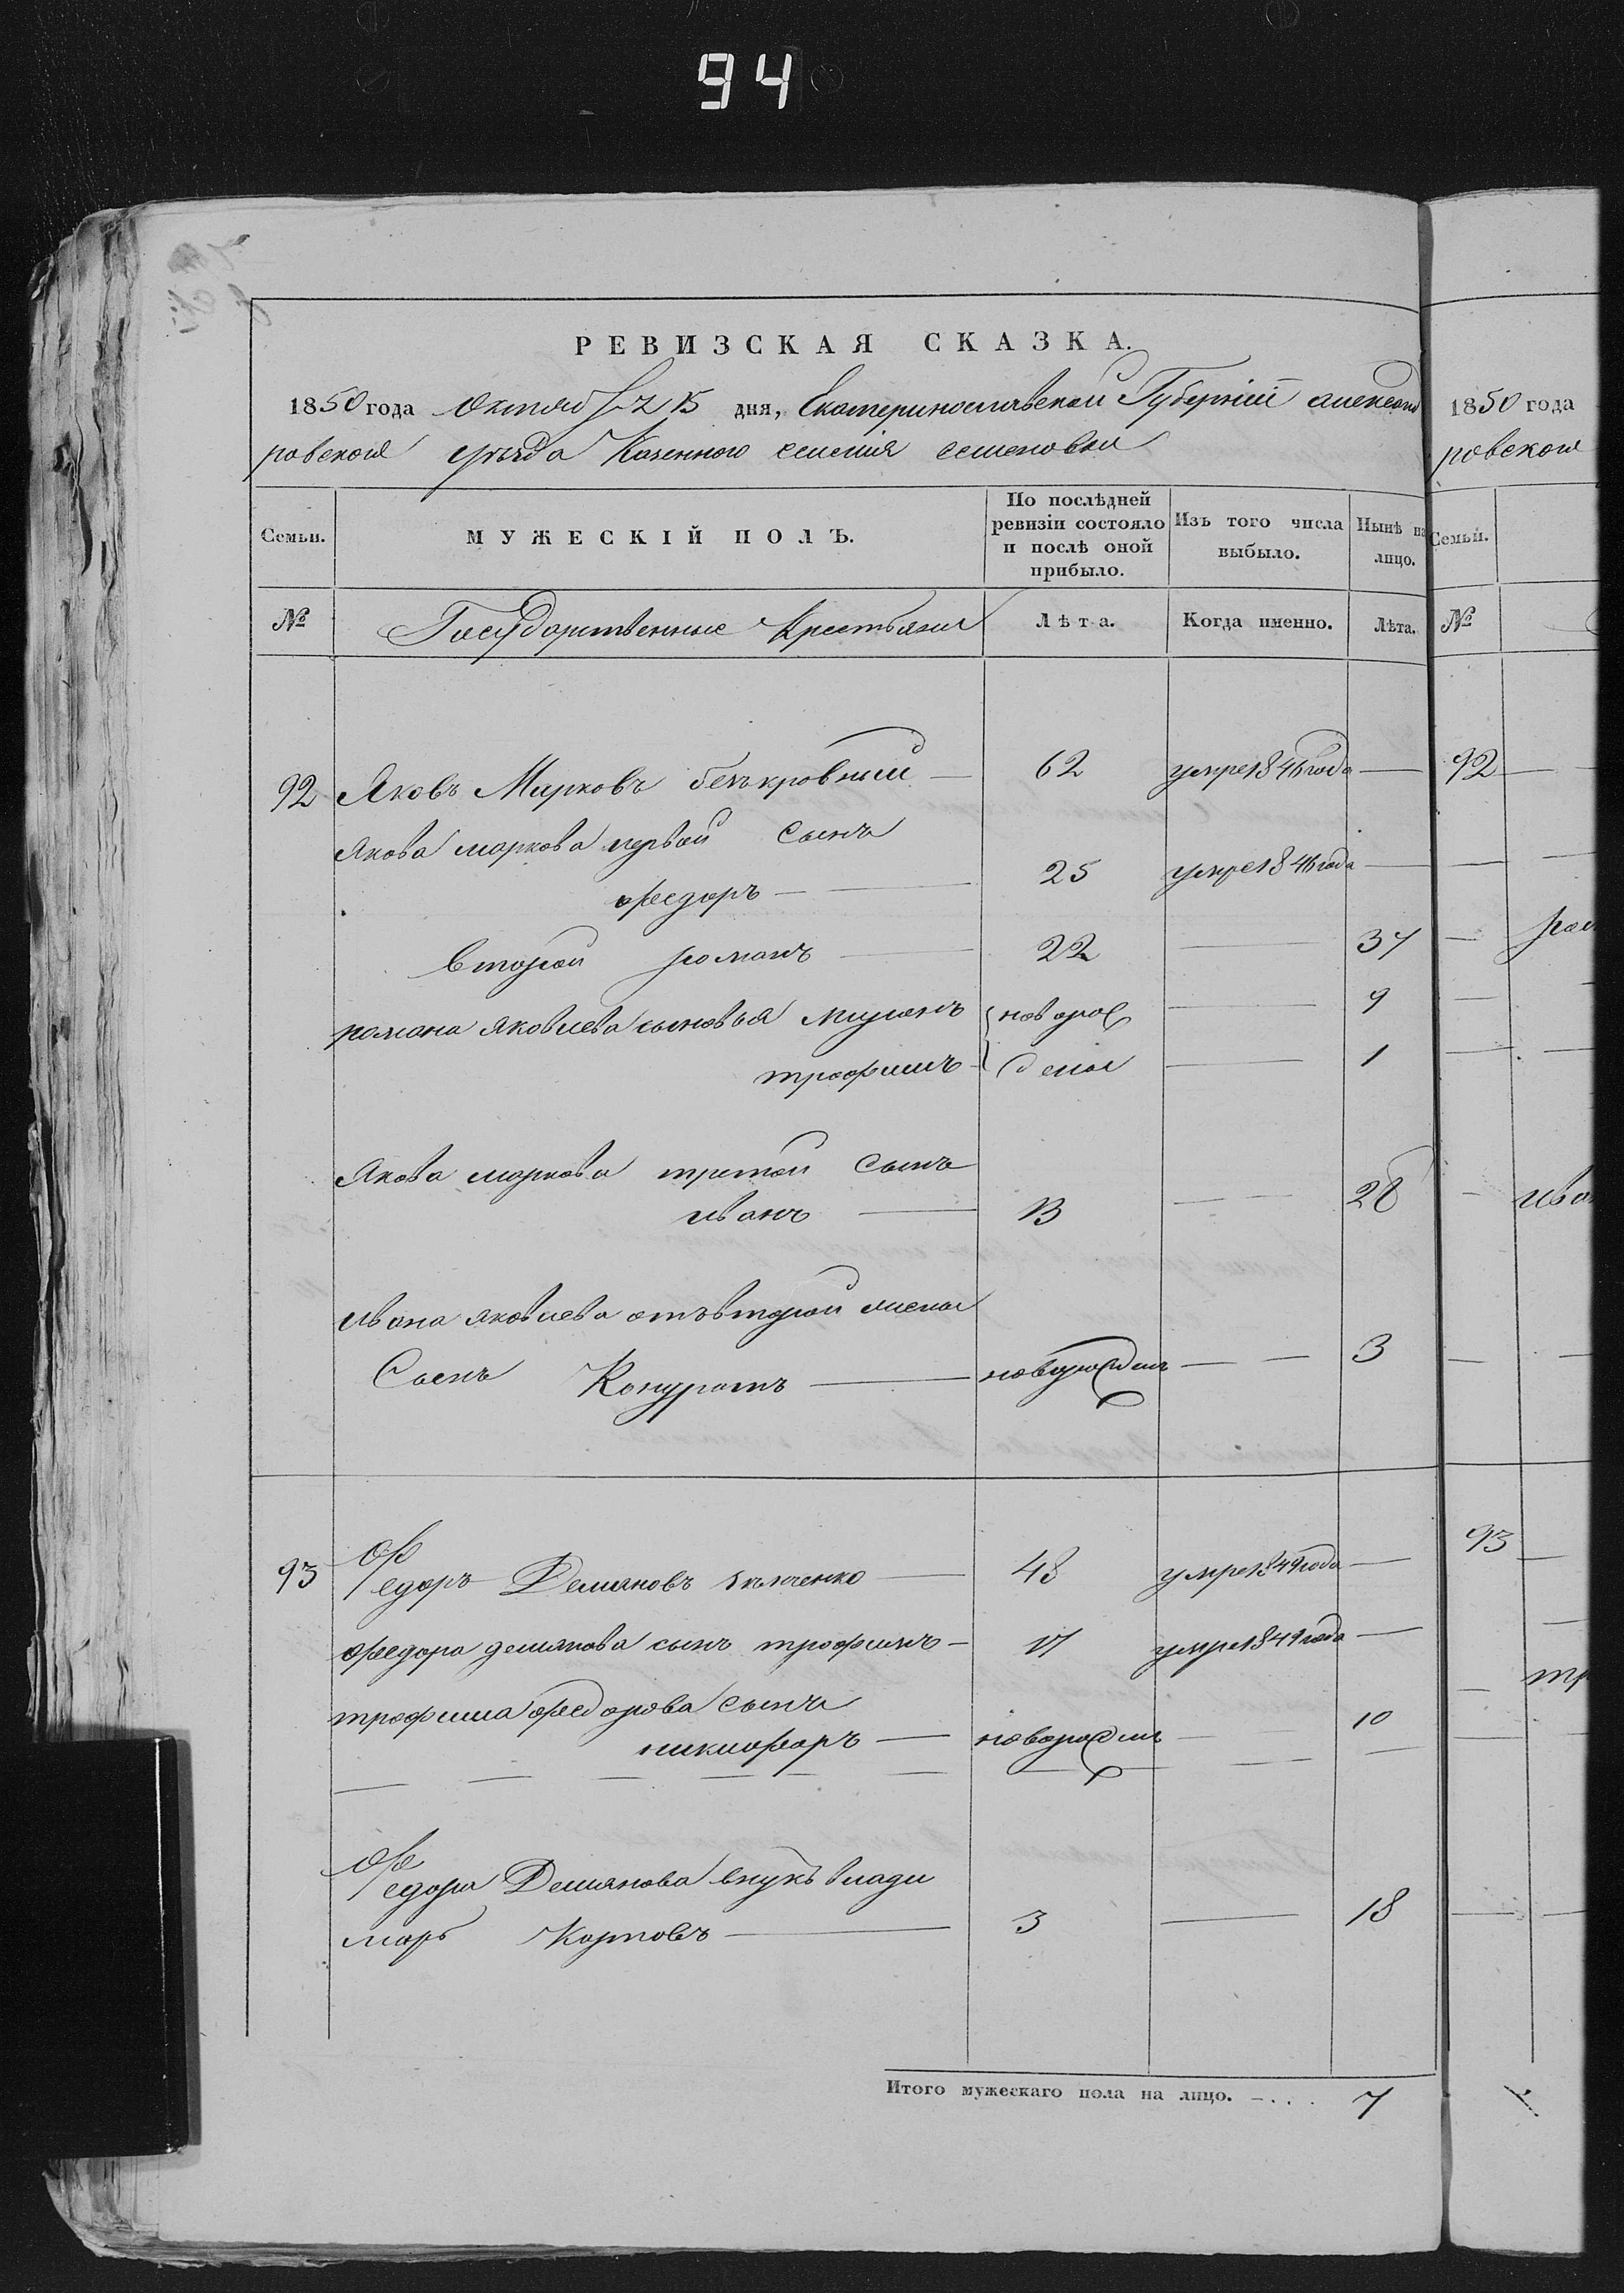 94
РЕВИЗСКАЯ СКАЗКА.
1850 года Октября 15 дня, Екатеринославской Губернїй александ
ровскою уѣзда Казенного селенїя семеновки
Семьи. МУЖЕСКІЙ ПОЛЪ. По послѣдней ревизіи состояло и послѣ оной прибыло. Изъ того числа выбыло. Нынѣ на лицо.
№ Государственные Крестьяне Лѣта. Когда именно. Лѣта.
92 Яковъ Марковъ безкровный — 62 умре 1846 года —
Якова маркова первой Сынъ
федоръ — 25 умре 1846 года —
второй романъ — 22 — 37
романа яковлева сыновья миронъ новорож — 9
трофимъ — дены — 1
Якова маркова третой Сынъ
иванъ — 13 — 28
ивана яковлева отъ второй жены
Сынъ Кондратъ — новорожденъ — 3
93 Федоръ Демяновъ — 48 умре 1849 года —
федора демянова сынъ трофимъ — 17 умре 1849 года —
трофима федорова сынъ
никифоръ — новорожденъ — 10
Федора Демянова внукъ влади
миръ Карповъ — 3 — 18
Итого мужескаго пола на лицо. — . . . 7
1850 года
ровскою
Семьи.
№
92
ром
ива
93
тр